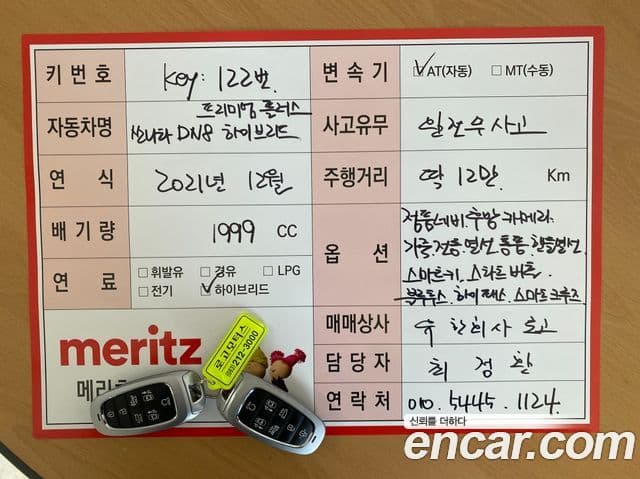 키 번 호 Key: 122번
변 속 기 ☑AT(자동) □MT(수동)
자동차명 프리미엄 플러스
쏘나타 DN8 하이브리드
사고유무 일절무사고
연 식 2021년 12월
주행거리 딱 12만 Km
배 기 량 1999 CC
옵 션 정품네비.후방카메라.
가죽.전동.열선.통풍.핸들열선.
스마트키.스타트버튼.
블루투스.하이패스.스마트크루즈
연 료 □휘발유 □경유 □LPG
□전기 ☑하이브리드
매매상사 유한회사 로고
meritz
메리츠
담 당 자 최 경 환
연 락 처 010.5445.1124
로고모터스
(063)212-3000
신뢰를 더하다
encar.com